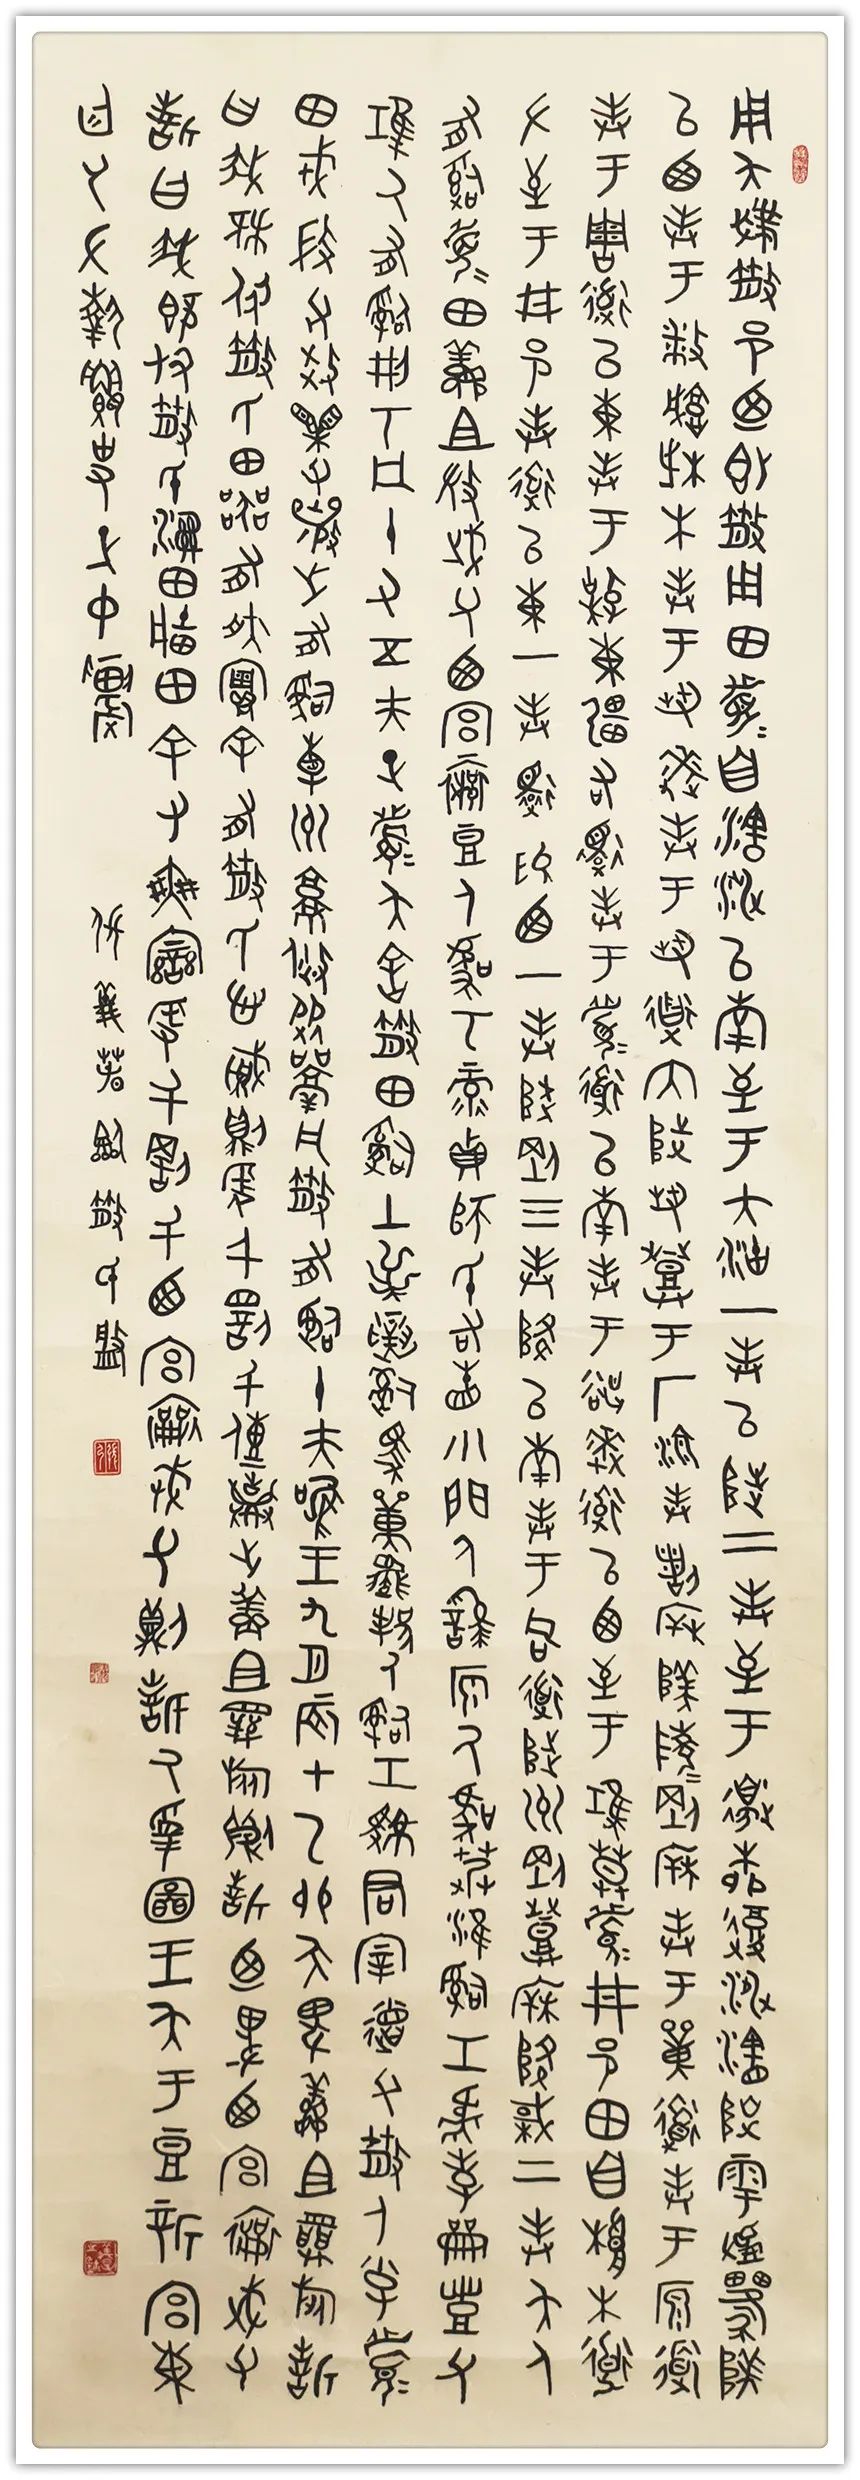 用夨撲散邑乃即散用田眉自瀗涉以南至于大沽一奉以陟二奉至于邊柳復涉瀗陟雩陕
以西奉于播城楮木奉于芻逨奉于芻道內陟芻登于厂湶奉諸𣏟陕陵剛𣏟奉于單道奉于原道
奉于周道以東奉于東疆右還奉于眉道以南奉于逨道以西至于唯莫眉井邑田自根木道
左至于井邑奉道以東一奉還以西一奉陟剛三奉降以南奉于同道陟州剛登𣏟降棫二奉夨人
有嗣眉田鮮且微武父西宮襄豆人虞丂彔貞師氏右眚小門人繇原人虞艿淮嗣工虎孝龠豐父
唯人有嗣刑丂凡十又五夫正眉夨舍散田嗣土逆寅嗣馬單邦人嗣工駷君宰德父散人小子眉
田戎微父效父襄之有嗣橐州就焂從凡散有嗣十夫唯王九月辰才乙卯夨卑鮮且旅誓
曰我既付散氏田器有爽實余有散氏心賊則爰千罰千傳棄之鮮且旅則誓乃卑西宮襄武父
誓曰我既付散氏濕田田余又爽爰千罰千西宮襄武父則誓厥受圖夨王于豆新宮東
廷厥左執史正中農
散氏盤